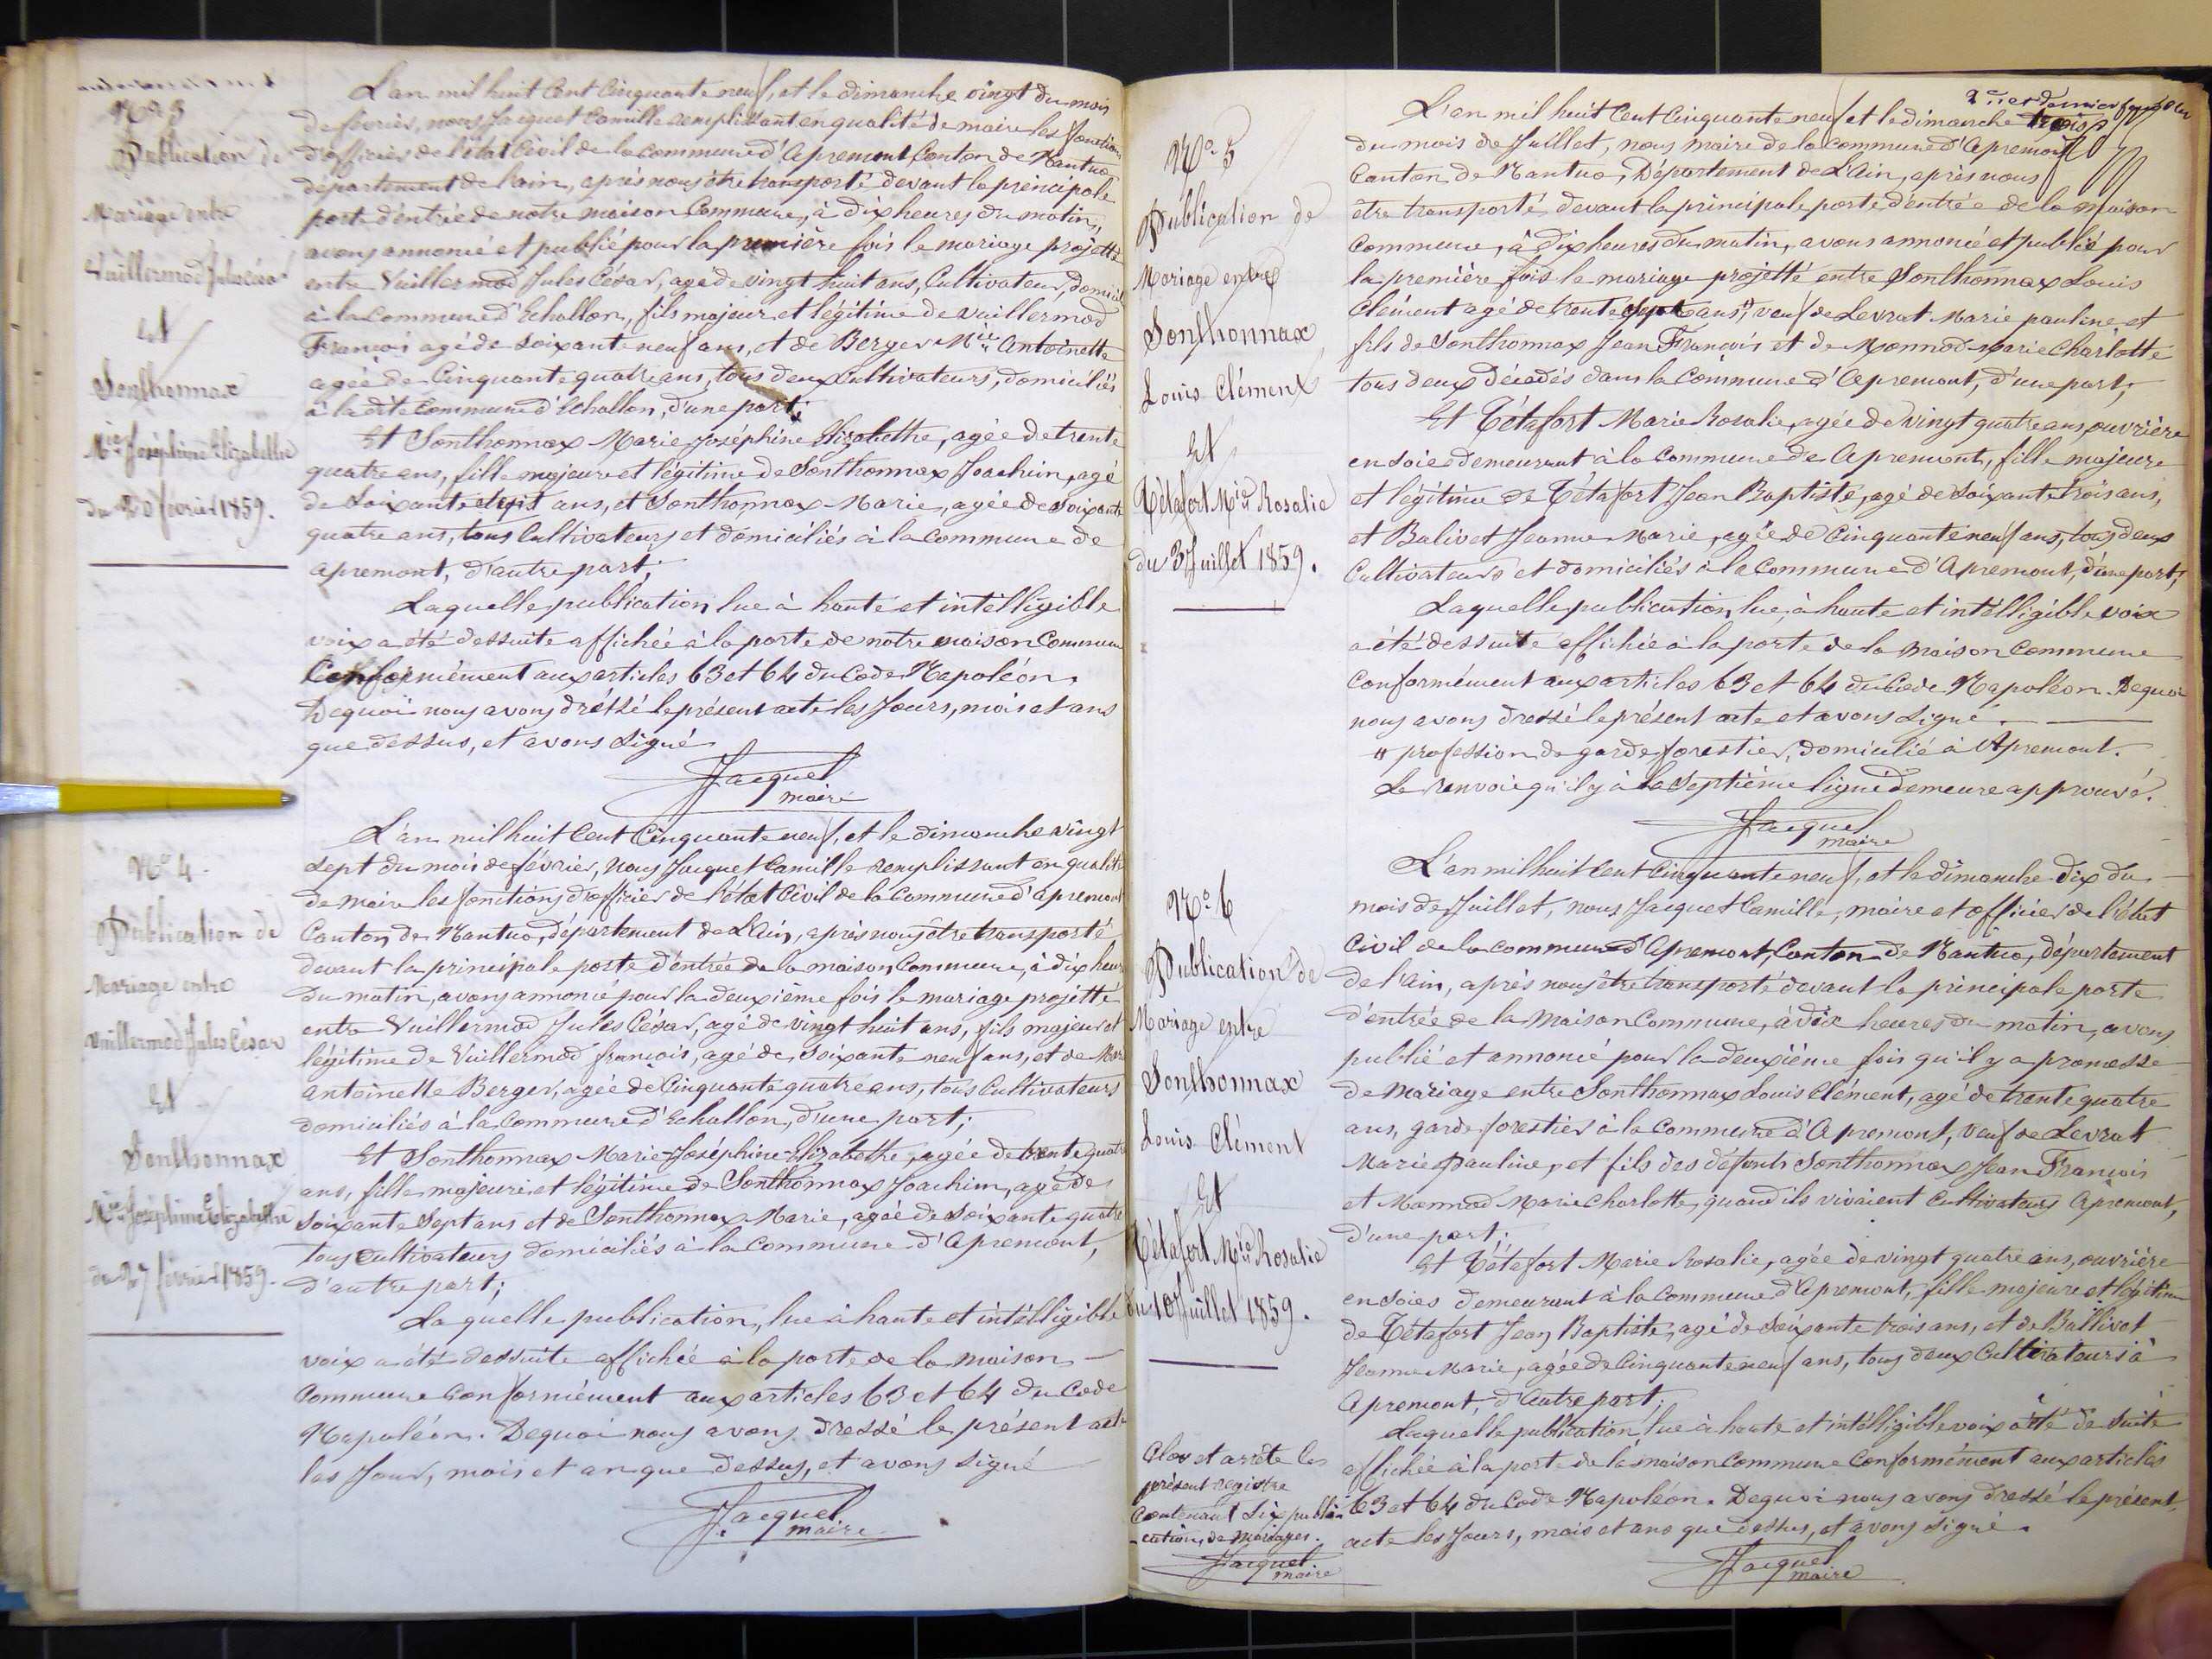 No 3
Publication de
Mariage entre
Vuillermod Jules César
Et
Sonthonnax
Mie Joséphine Elizabethe
du 20 février 1859.
L'an mil huit Cent Cinquante neuf, et le dimanche vingt du mois
de février, nous Jacquet Camille remplissant en qualité de maire les fonctions
d'officier de l'état Civil de la commune d'Apremont Canton de Nantua
département de l'ain, après nous être transporté devant la principale
porte d'entrée de notre maison Commune, à dix heures du matin,
avons annoncé et publié pour la première fois le mariage projetté
entre Vuillermod Jules César, agé de vingt huit ans, Cultivateur, domicilié
à la Commune d'Echallon, fils majeur et légitime de Vuillermod
François agé de soixante neuf ans, et de Berger Mie Antoinette
agée de Cinquante quatre ans, tous deux Cultivateurs, domiciliés
à la dite Commune d'Echallon, d'une part;
Et Sonthonnax Marie Joséphine Elizabethe, agée de trente
quatre ans, fille majeure et légitime de Sonthonnax Joachim, agé
de soixante sept ans, et Sonthonnax Marie, agée de soixante
quatre ans, tous Cultivateurs et domiciliés à la Commune de
apremont, d'autre part;
Laquelle publication lue à haute et intélligible
voix a été dessuite affichée à la porte de notre maison Commune
Conformément aux articles 63 et 64 du Code Napoléon.
Dequoi nous avons dréssé le présent acte les Jours, mois et ans
que dessus, et avons signé
Jacquet
maire
No 4
Publication de
Mariage entre
Vuillermod Jules César
Et
Sonthonnax
Mie Joséphine Elizabethe
du 27 février 1859.
L'an mil huit Cent Cinquante neuf, et le dimanche vingt
sept du mois de février, nous Jacquet Camille remplissant en qualité
de maire les fonctions d'officier de l'état Civil de la Commune d'apremont
Canton de Nantua, département de L'ain, après nous être transporté
devant la principale porte d'entrée de la maison Commune, à dix heures
du matin, avons annoncé pour la deuxième fois le mariage projetté
entre Vuillermod Jules César, agé de vingt huit ans, fils majeur et
légitime de Vuillermod françois, agé de soixante neuf ans, et de Marie
Antoinette Berger, agée de Cinquante quatre ans, tous Cultivateurs
domiciliés à la Commune d'Echallon, d'une part;
Et Sonthonnax Marie-Joséphine-Elizabethe, agée de trente quatre
ans, fille majeure et légitime de Sonthonnax Joachim, agé de
soixante Sept ans et de Sonthonnax Marie, agée de soixante quatre
tous Cultivateurs domiciliés à la Commune d'Apremont,
d'autre part;
Laquelle publication, lue à haute et intélligible
voix a été dessuite affichée à la porte de la maison
Commune Conformément aux articles 63 et 64 du Code
Napoléon. Dequoi nous avons dressé le présent acte
les Jour, mois et an que dessus, et avons signé
Jacquet
maire
No 5
Publication de
Mariage entre
Sonthonnax
Louis Clément
Et
Tétafort Mie Rosalie
du 3 Juillet 1859.
2e et dernier
L'an mil huit Cent Cinquante neuf et le dimanche trois
du mois de Juillet, nous maire de la commune d'Apremont
Canton de Nantua, Département de L'Ain, après nous
être transporté devant la principale porte d'entrée de la maison
commune, à dix heures du matin, avons annoncé et publié pour
la première fois le mariage projetté entre Sonthonnax Louis
Clément agé de trente quatre ans, " veuf de Levrat Marie pauline et
fils de Sonthonnax Jean François et de Monnod Marie Charlotte
tous deux Décédés dans la Commune d'Apremont, d'une part,
Et Tétafort Marie Rosalie, agée de vingt quatre ans, ouvrière
en soies demeurant à la Commune de Apremont, fille majeure
et légitime de Tétafort Jean Baptiste, agé de Soixante trois ans,
et Balivet Jeanne Marie, agée de Cinquante neuf ans, tous deux
Cultivateurs et domiciliés à la Commune d'Apremont, d'une part,
Laquelle publication, lue, à haute et intélligible voix
a été dessuite affichée à la porte de la Maison Commune
Conformément aux articles 63 et 64 du Code Napoléon. Dequoi
nous avons dressé le présent acte et avons signé.
" profession de garde forestier, domicilié à Apremont.
Le renvoie qu'il y a à la Septième ligne demeure approuvé.
Jacquet
maire
No 6
Publication de
Mariage entre
Sonthonnax
Louis Clément
Et
Tétafort Mie Rosalie
du 10 Juillet 1859.
L'an mil huit Cent Cinquante neuf, et le dimanche dix du
mois de Juillet, nous Jacquet Camille, maire et officier de l'état
Civil de la commune d'Apremont, Canton de Nantua, département
de l'ain, après nous être transporté devant la principale porte
d'entrée de la Maison Commune, à dix heures du matin, avons
publié et annoncé pour la deuxième fois qu'il y a promesse
de Mariage entre Sonthonnax Louis Clément, agé de trente quatre
ans, garde forestier à la Commune d'Apremont, veuf de Levrat
Marie Pauline, et fils des défunts Sonthonnax Jean François
et Monnod Marie Charlotte, quand ils vivaient Cultivateurs Apremont,
d'une part;
Et Tétafort Marie Rosalie, agée de vingt quatre ans, ouvrière
en soies demeurant à la Commune d'Apremont, fille majeure et légitime
de Tétafort Jean Baptiste, agé de Soixante trois ans, et de Ballivet
Jeanne Marie, agée de Cinquante neuf ans, tous deux Cultivateurs à
Apremont, d'autre part;
Laquelle publication, lue à haute et intélligible voix a été de suite
affichée à la porte de la maison Commune Conformément aux articles
63 et 64 du Code Napoléon. Dequoi nous avons dréssé le présent
acte les Jours, mois et ans que dessus, et avons signé.
Jacquet
maire
Clos et arrête les
présent registre
Contenant Six publi
-cations de Mariages.
Jacquet
maire